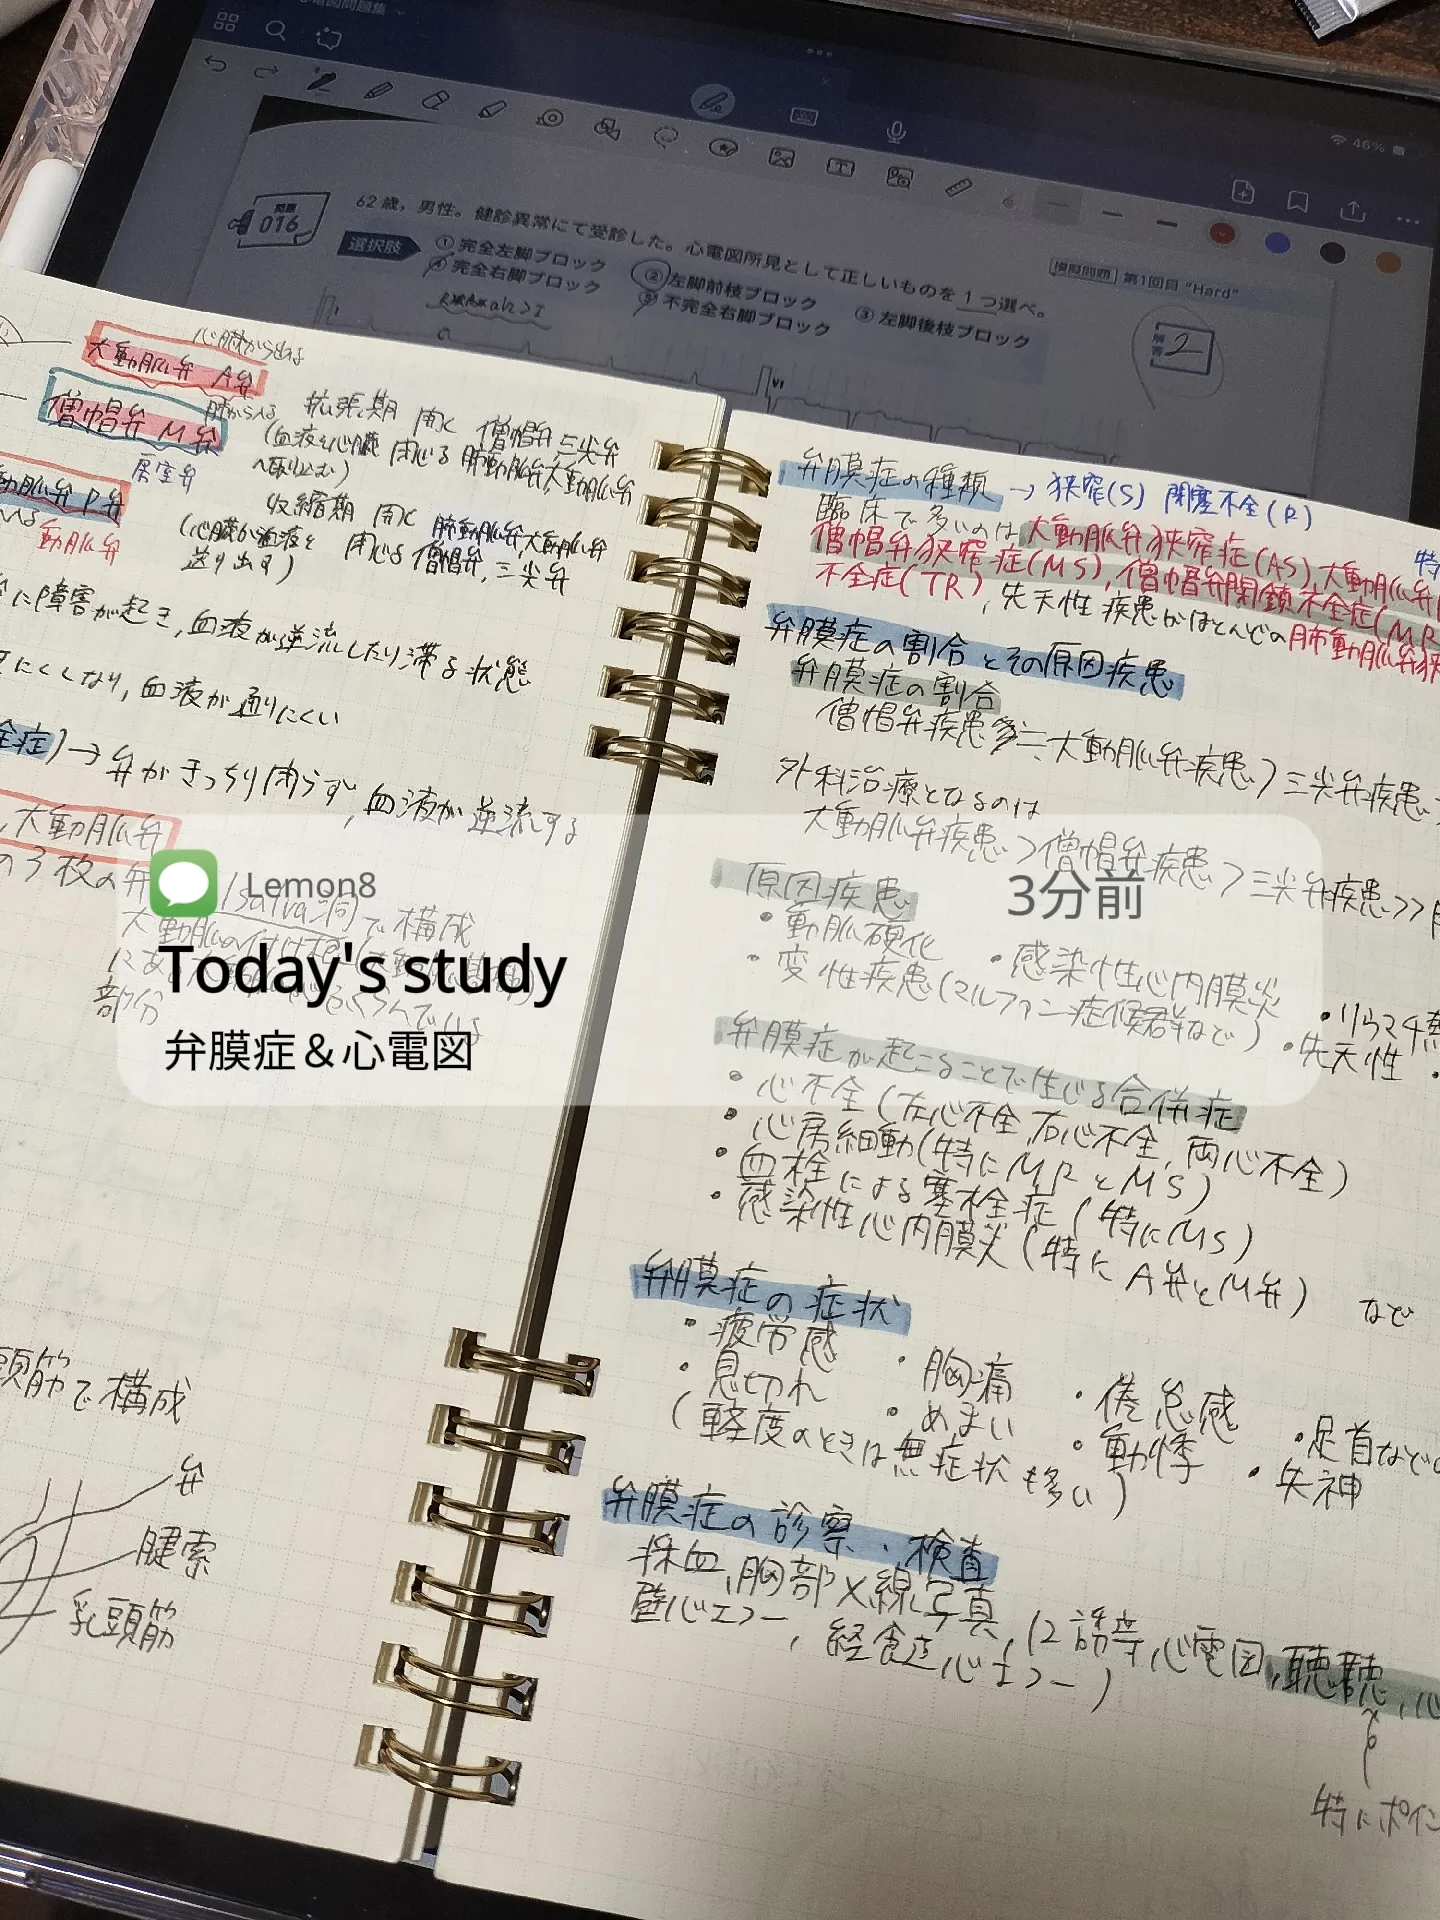 心電図問題集
46%
問題
016
62歳，男性。健診異常にて受診した。心電図所見として正しいものを1つ選べ。
選択肢
①完全左脚ブロック
②左脚前枝ブロック
③左脚後枝ブロック
④完全右脚ブロック
⑤不完全右脚ブロック
模擬問題 第1回目 "Hard"
解答 2
V1
心臓から出る
大動脈弁 A弁
僧帽弁 M弁
房室弁
動脈弁 P弁
動脈弁
拡張期 開く 僧帽弁,三尖弁
(血液を心臓へ取り込む)
閉じる 肺動脈弁,大動脈弁
収縮期 開く 肺動脈弁,大動脈弁
(心臓が血液を送り出す)
閉じる 僧帽弁,三尖弁
に障害が起き,血液が逆流したり滞る状態
にくくなり,血液が通りにくい
全症)→弁がきっちり閉らず,血液が逆流する
,大動脈弁
の3枚の弁
で構成
部分
Lemon8
3分前
Today's study
弁膜症＆心電図
頭筋で構成
弁
腱索
乳頭筋
弁膜症の種類→狭窄(S) 閉塞不全(R)
臨床で多いのは,大動脈弁狭窄症(AS),大動脈弁
僧帽弁狭窄症(MS),僧帽弁閉鎖不全症(MR
不全症(TR),先天性疾患がほとんどの肺動脈弁狭
弁膜症の割合とその原因疾患
弁膜症の割合
僧帽弁疾患≧大動脈弁疾患>三尖弁疾患
外科治療となるのは
大動脈弁疾患>僧帽弁疾患>三尖弁疾患>>
原因疾患
・動脈硬化 ・感染性心内膜炎 ・リウマチ熱
・変性疾患(マルファン症候群など) ・先天性
弁膜症が起こることで生じる合併症
・心不全(左心不全,右心不全,両心不全)
・心房細動(特にMRとMS)
・血栓による塞栓症(特にMS)
・感染性心内膜炎(特にA弁とM弁) など
弁膜症の症状
・疲労感 ・胸痛 ・倦怠感 ・足首などの
・息切れ ・めまい ・動悸 ・失神
(軽度のときは無症状も多い)
弁膜症の診察・検査
採血,胸部X線写真,12誘導心電図,聴聴,心
壁心エコー,経食道心エコー)
特にポイン